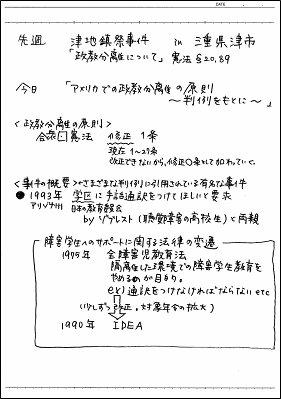 DATE
先週 津地鎮祭事件 in 三重県津市
「政教分離について」 憲法§20,89
今日 「アメリカでの政教分離の原則
〜判例をもとに〜」
<政教分離の原則>
合衆国憲法 修正 1条
現在 1〜27条
改正できないから、修正○条として加わっていく。
<事件の概要>←さまざまな判例に引用されている有名な事件
●1993年 学区に手話通訳をつけてほしいと要求
アリゾナ州 日本の教育委員会
by ジブレスト(聴覚障害の高校生)と両親
障害学生へのサポートに関する法律の変遷
1975年 全障害児教育法
隔離した環境での障害学生教育を
やめるのが目的。
ex) 通訳をつけなければならない etc
(少しずつ改正。対象年令の拡大)
1990年 IDEA